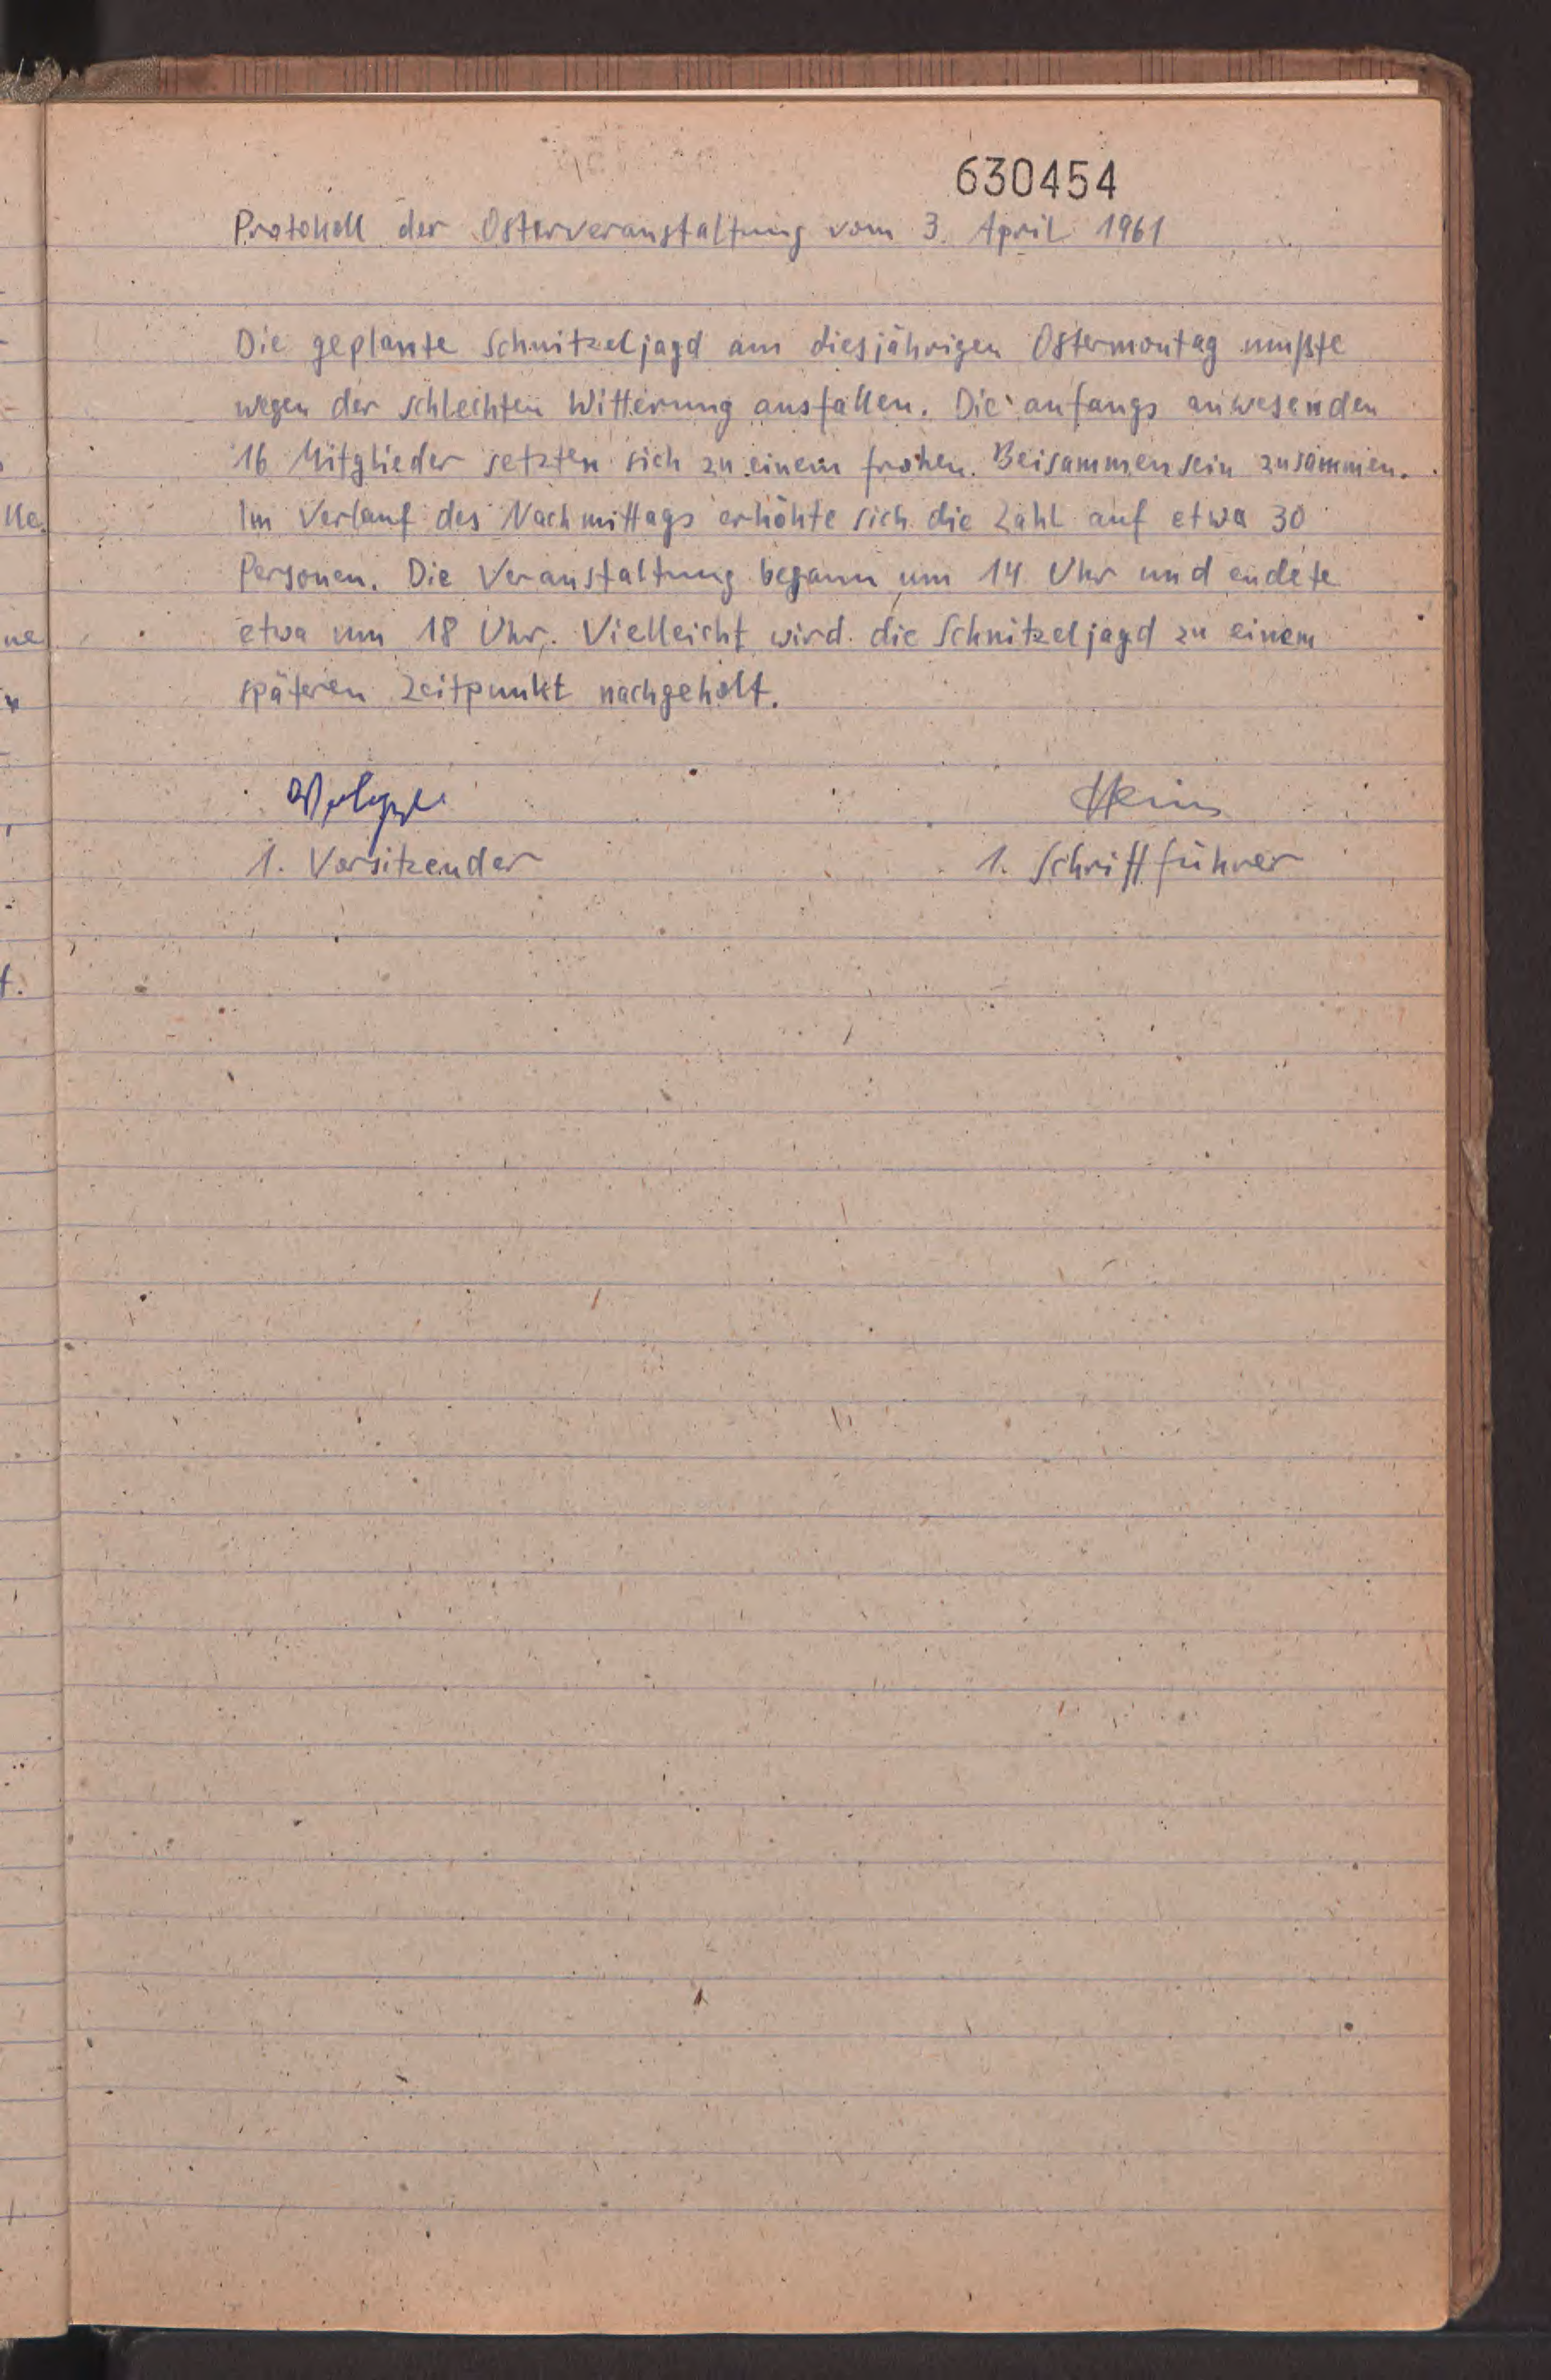 630454
Protokoll der Osterveranstaltung vom 3. April 1961
Die geplante Schnitzeljagd am diesjährigen Ostermontag mußte
wegen der schlechten Witterung ausfallen. Die anfangs anwesenden
16 Mitglieder setzten sich zu einem frohen Beisammensein zusammen.
Im Verlauf des Nachmittags erhöhte sich die Zahl auf etwa 30
Personen. Die Veranstaltung begann um 14 Uhr und endete
etwa um 18 Uhr. Vielleicht wird die Schnitzeljagd zu einem
späteren Zeitpunkt nachgeholt.
1. Vorsitzender
1. Schriftführer